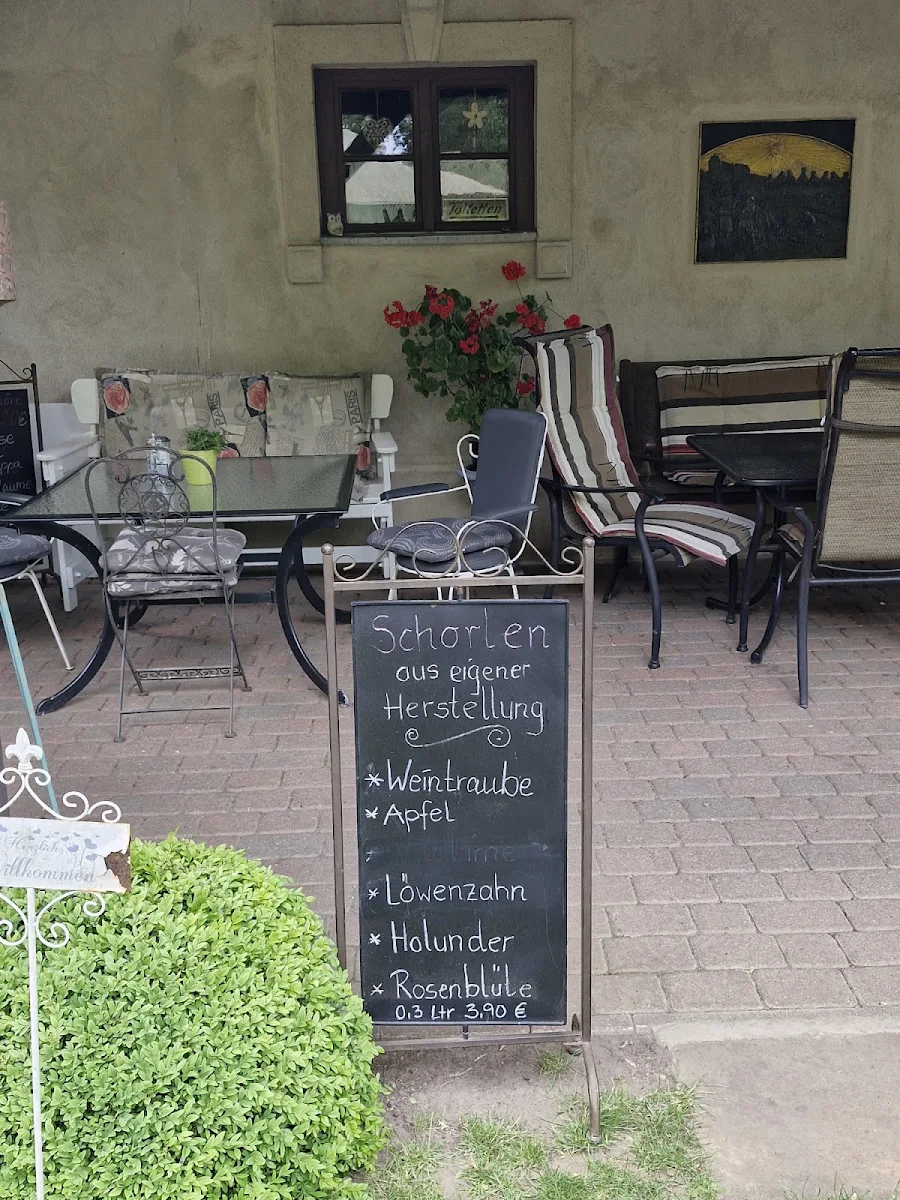 Toiletten
PARIS
PARIS
Schorlen
aus eigener
Herstellung
* Weintraube
* Apfel
* Löwenzahn
* Holunder
* Rosenblüte
0,3 Ltr 3,90 €
Herzlich
Willkommen